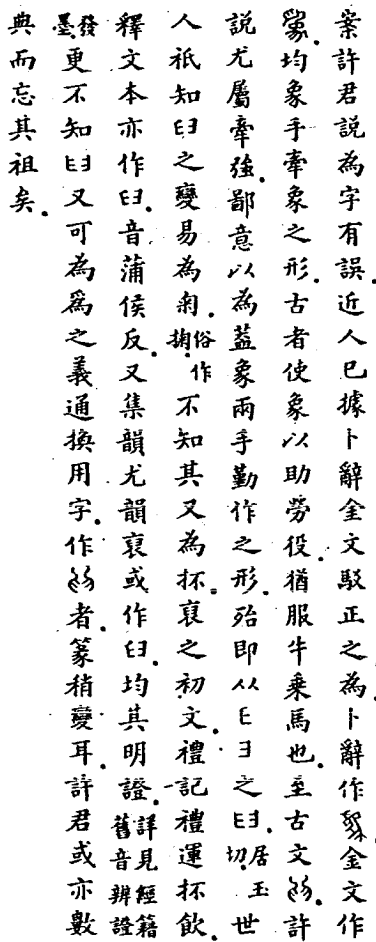 案許君說為字有誤近人已據卜辭金文駁正之為卜辭作金文作
均象手牽象之形古者使象以助勞役猶服牛乘馬也至古文許
說尤屬牽強鄙意以為蓋象兩手勤作之形殆即从𠂈彐之𦥑居玉切世
人祇知𦥑之變易為匊俗作掬不知其又為抔裒之初文禮記禮運抔飲
釋文本亦作𦥑音蒲侯反又集韻尤韻裒或作𦥑均其明證詳見經籍舊音辨證
發墨更不知𦥑又可為爲之義通換用字作者篆稍變耳許君或亦數
典而忘其祖矣